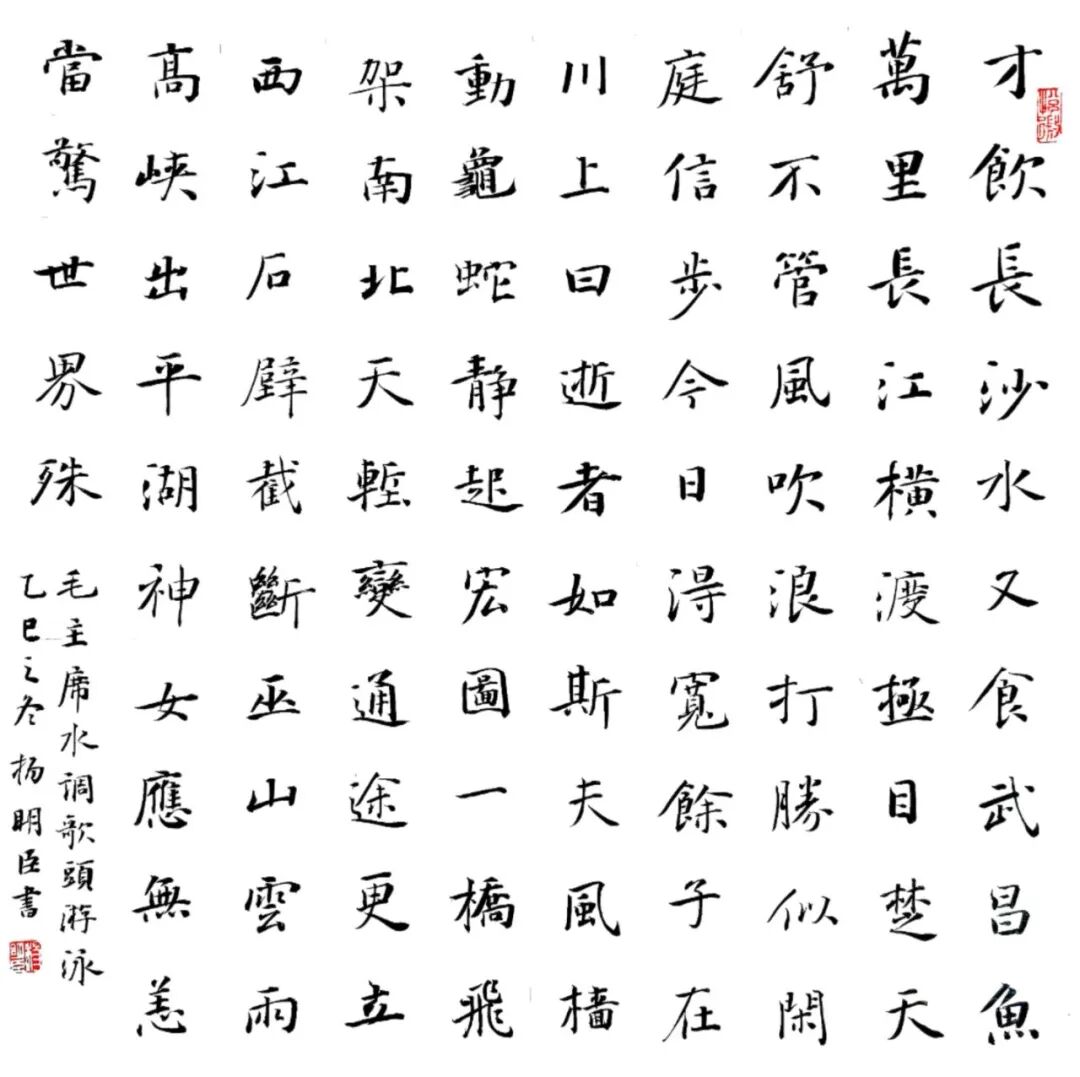 才飲長沙水又食武昌魚
萬里長江橫渡極目楚天
舒不管風吹浪打勝似閑
庭信步今日得寬餘子在
川上曰逝者如斯夫風檣
動龜蛇靜起宏圖一橋飛
架南北天塹變通途更立
西江石壁截斷巫山雲雨
髙峽出平湖神女應無恙
當驚世界殊
毛主席水调歌頭游泳
乙巳之冬杨明臣書